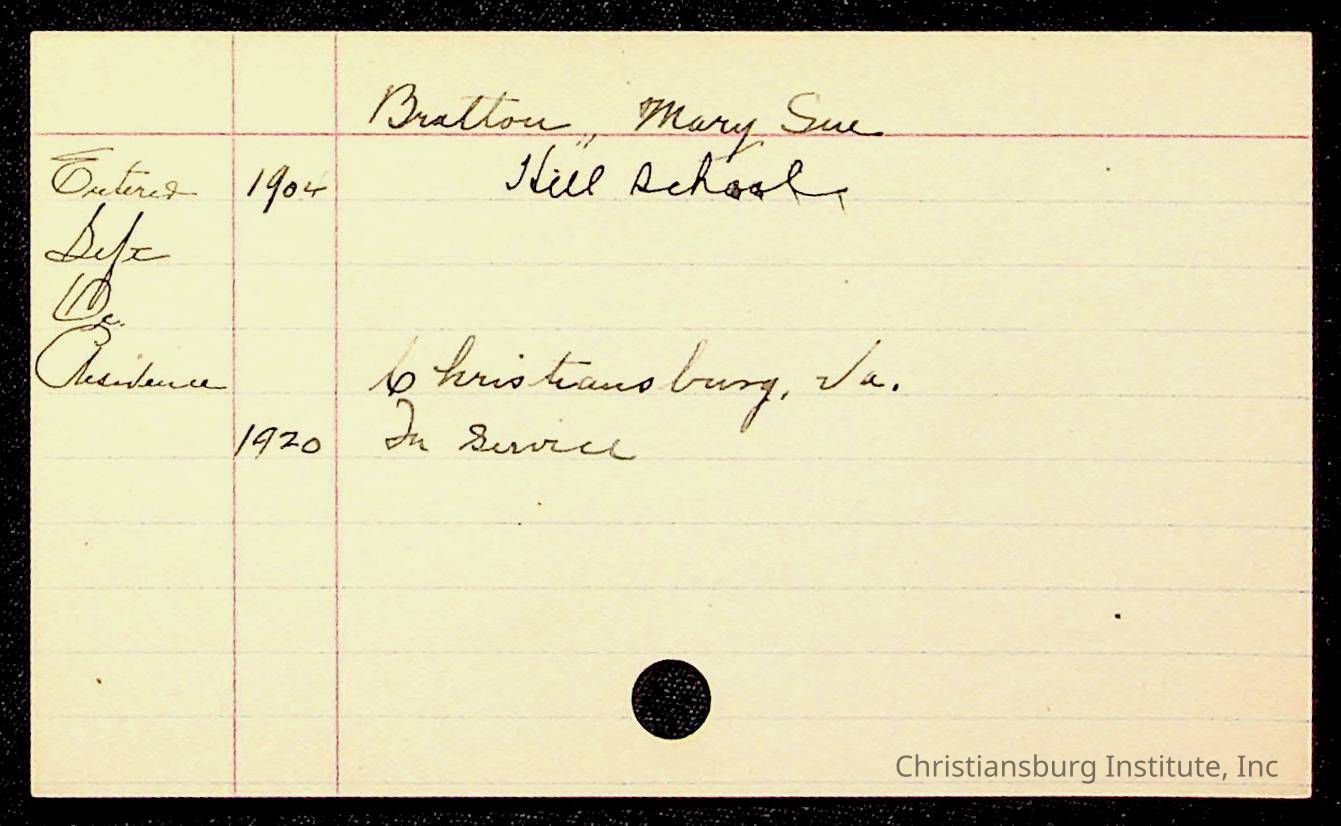 Bratton, Mary Sue
Entered 1904 Hill School
Left
Residence Christiansburg, Va.
1920 In Service
Christiansburg Institute, Inc